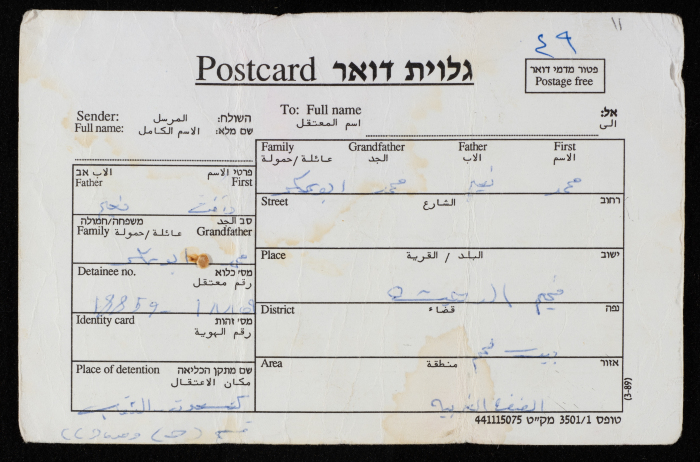 ٤٩
Postcard גלוית דואר
פטור מדמי דואר
Postage free
Sender: المرسل השולח:
Full name: الاسم الكامل שם מלא:
To: Full name אל:
اسم المعتقل الى
Family Grandfather Father First
عائلة/حمولة الجد الاب الاسم
محمد نعيم محمد ابو
Street الشارع רחוב
Place البلد / القرية ישוב
مخيم الدهيشة
District قضاء נפה
بيت لحم
Area منطقة אזור
الضفة الغربية
الاب אב פרטי الاسم
Father First
نعيم
משפחה/חמולה סב الجد
Family عائلة/حمولة Grandfather
ابو
Detainee no. מס' כלוא
رقم معتقل
Identity card מס' זהות
رقم الهوية
Place of detention שם מתקן הכליאה
مكان الاعتقال
قسم
(3-89)
טופס 3501/1 מק"ט 441115075